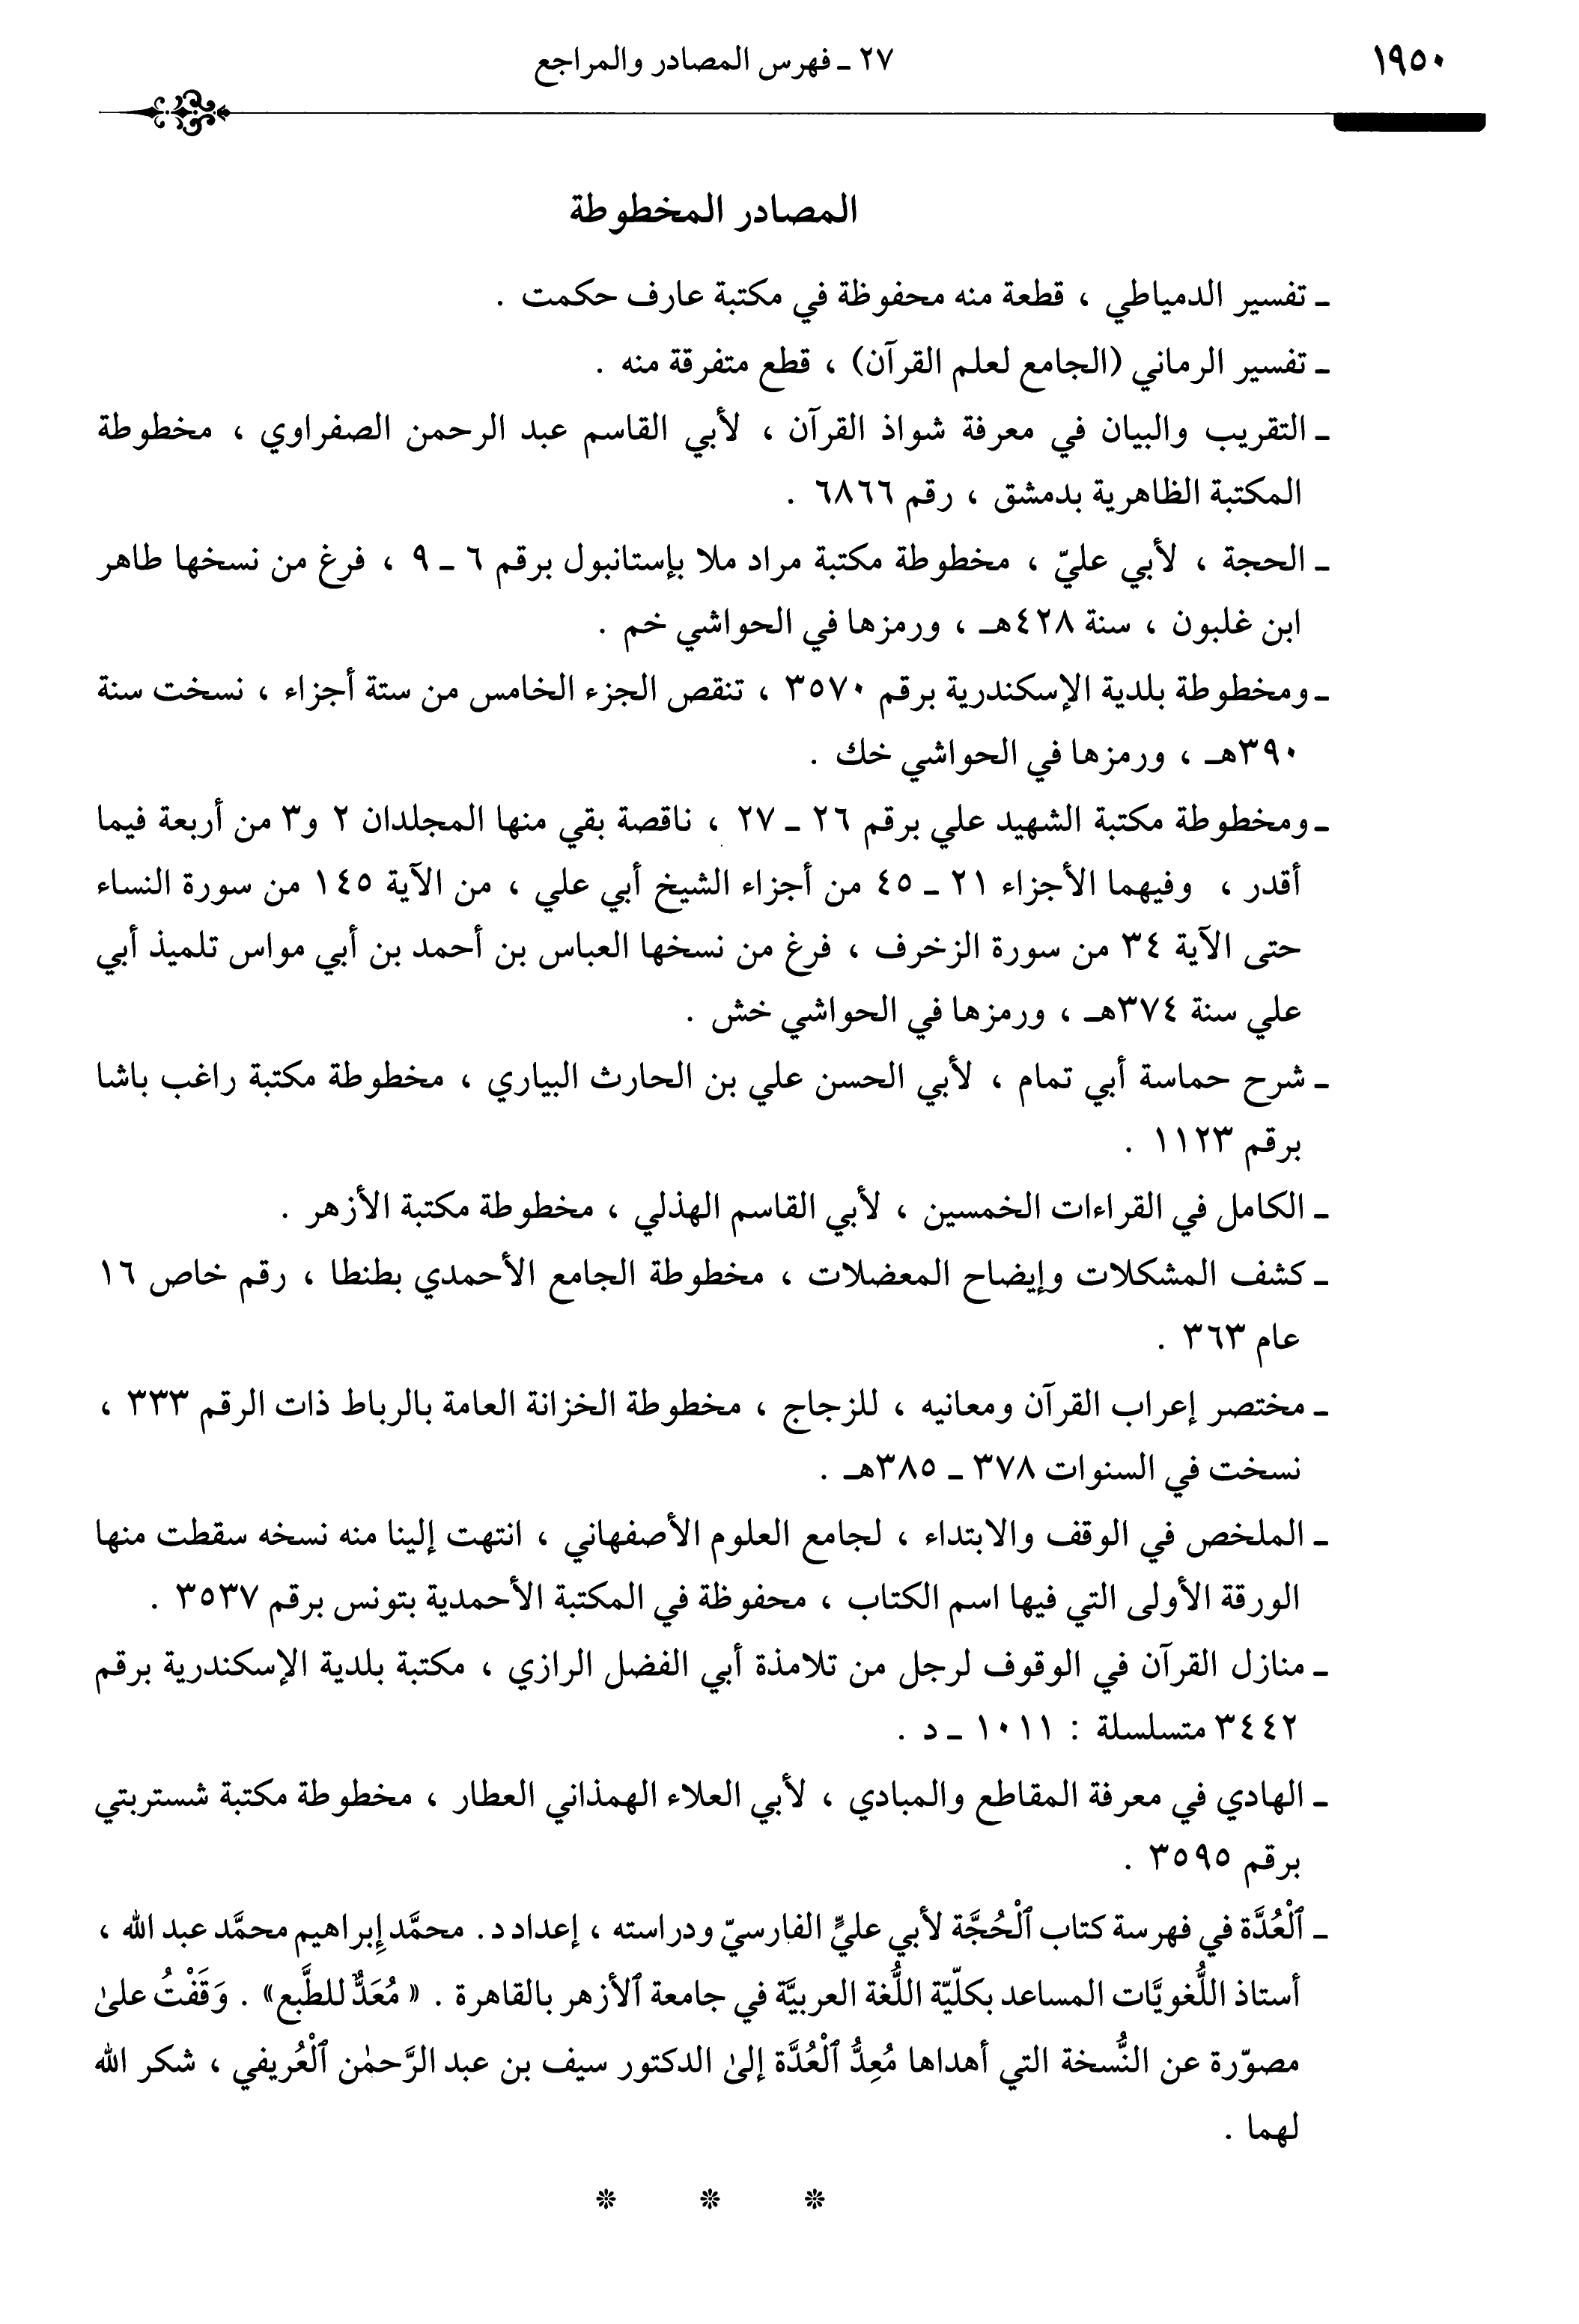 ١٩٥٠
٢٧ ـ فهرس المصادر والمراجع
المصادر المخطوطة
ـ تفسير الدمياطي ، قطعة منه محفوظة في مكتبة عارف حكمت .
ـ تفسير الرماني (الجامع لعلم القرآن) ، قطع متفرقة منه .
ـ التقريب والبيان في معرفة شواذ القرآن ، لأبي القاسم عبد الرحمن الصفراوي ، مخطوطة
المكتبة الظاهرية بدمشق ، رقم ٦٨٦٦ .
ـ الحجة ، لأبي عليّ ، مخطوطة مكتبة مراد ملا بإستانبول برقم ٦ ـ ٩ ، فرغ من نسخها طاهر
ابن غلبون ، سنة ٤٢٨هـ ، ورمزها في الحواشي خم .
ـ ومخطوطة بلدية الإسكندرية برقم ٣٥٧٠ ، تنقص الجزء الخامس من ستة أجزاء ، نسخت سنة
٣٩٠هـ ، ورمزها في الحواشي خك .
ـ ومخطوطة مكتبة الشهيد علي برقم ٢٦ ـ ٢٧ ، ناقصة بقي منها المجلدان ٢ و٣ من أربعة فيما
أقدر ، وفيهما الأجزاء ٢١ ـ ٤٥ من أجزاء الشيخ أبي علي ، من الآية ١٤٥ من سورة النساء
حتى الآية ٣٤ من سورة الزخرف ، فرغ من نسخها العباس بن أحمد بن أبي مواس تلميذ أبي
علي سنة ٣٧٤هـ ، ورمزها في الحواشي خش .
ـ شرح حماسة أبي تمام ، لأبي الحسن علي بن الحارث البياري ، مخطوطة مكتبة راغب باشا
برقم ١١٢٣ .
ـ الكامل في القراءات الخمسين ، لأبي القاسم الهذلي ، مخطوطة مكتبة الأزهر .
ـ كشف المشكلات وإيضاح المعضلات ، مخطوطة الجامع الأحمدي بطنطا ، رقم خاص ١٦
عام ٣٦٣ .
ـ مختصر إعراب القرآن ومعانيه ، للزجاج ، مخطوطة الخزانة العامة بالرباط ذات الرقم ٣٣٣ ،
نسخت في السنوات ٣٧٨ ـ ٣٨٥هـ .
ـ الملخص في الوقف والابتداء ، لجامع العلوم الأصفهاني ، انتهت إلينا منه نسخه سقطت منها
الورقة الأولى التي فيها اسم الكتاب ، محفوظة في المكتبة الأحمدية بتونس برقم ٣٥٣٧ .
ـ منازل القرآن في الوقوف لرجل من تلامذة أبي الفضل الرازي ، مكتبة بلدية الإسكندرية برقم
٣٤٤٢ متسلسلة : ١٠١١ ـ د .
ـ الهادي في معرفة المقاطع والمبادي ، لأبي العلاء الهمذاني العطار ، مخطوطة مكتبة شستربتي
برقم ٣٥٩٥ .
ـ ٱلْعُدَّة في فهرسة كتاب ٱلْحُجَّة لأبي عليٍّ الفارسيّ ودراسته ، إعداد د. محمَّد إِبراهيم محمَّد عبد الله ،
أستاذ اللُّغويَّات المساعد بكلّيّة اللُّغة العربيَّة في جامعة ٱلأزهر بالقاهرة . « مُعَدٌّ للطَّبع» . وَقَفْتُ علىٰ
مصوّرة عن النُّسخة التي أهداها مُعِدُّ ٱلْعُدَّة إلىٰ الدكتور سيف بن عبد الرَّحمٰن ٱلْعُريفي ، شكر الله
لهما .
* * *